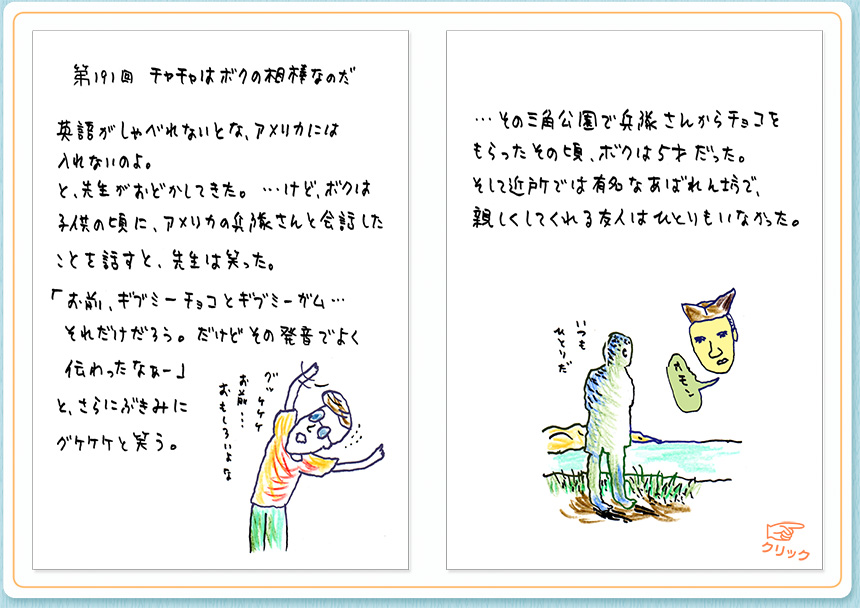 第191回 チャチャはボクの相棒なのだ
英語がしゃべれないとな、アメリカには
入れないのよ。
と、先生がおどかしてきた。…けど、ボクは
子供の頃に、アメリカの兵隊さんと会話した
ことを話すと、先生は笑った。
「お前、ギブミーチョコとギブミーガム…
それだけだろう。だけどその発音でよく
伝わったなぁー」
と、さらにぶきみに
グケケケと笑う。
グッケケケ
お前…
おもしろいよな
…その三角公園で兵隊さんからチョコを
もらったその頃、ボクは5才だった。
そして近所では有名なあばれん坊で、
親しくしてくれる友人はひとりもいなかった。
いつも
ひとりだ
カモン
クリック